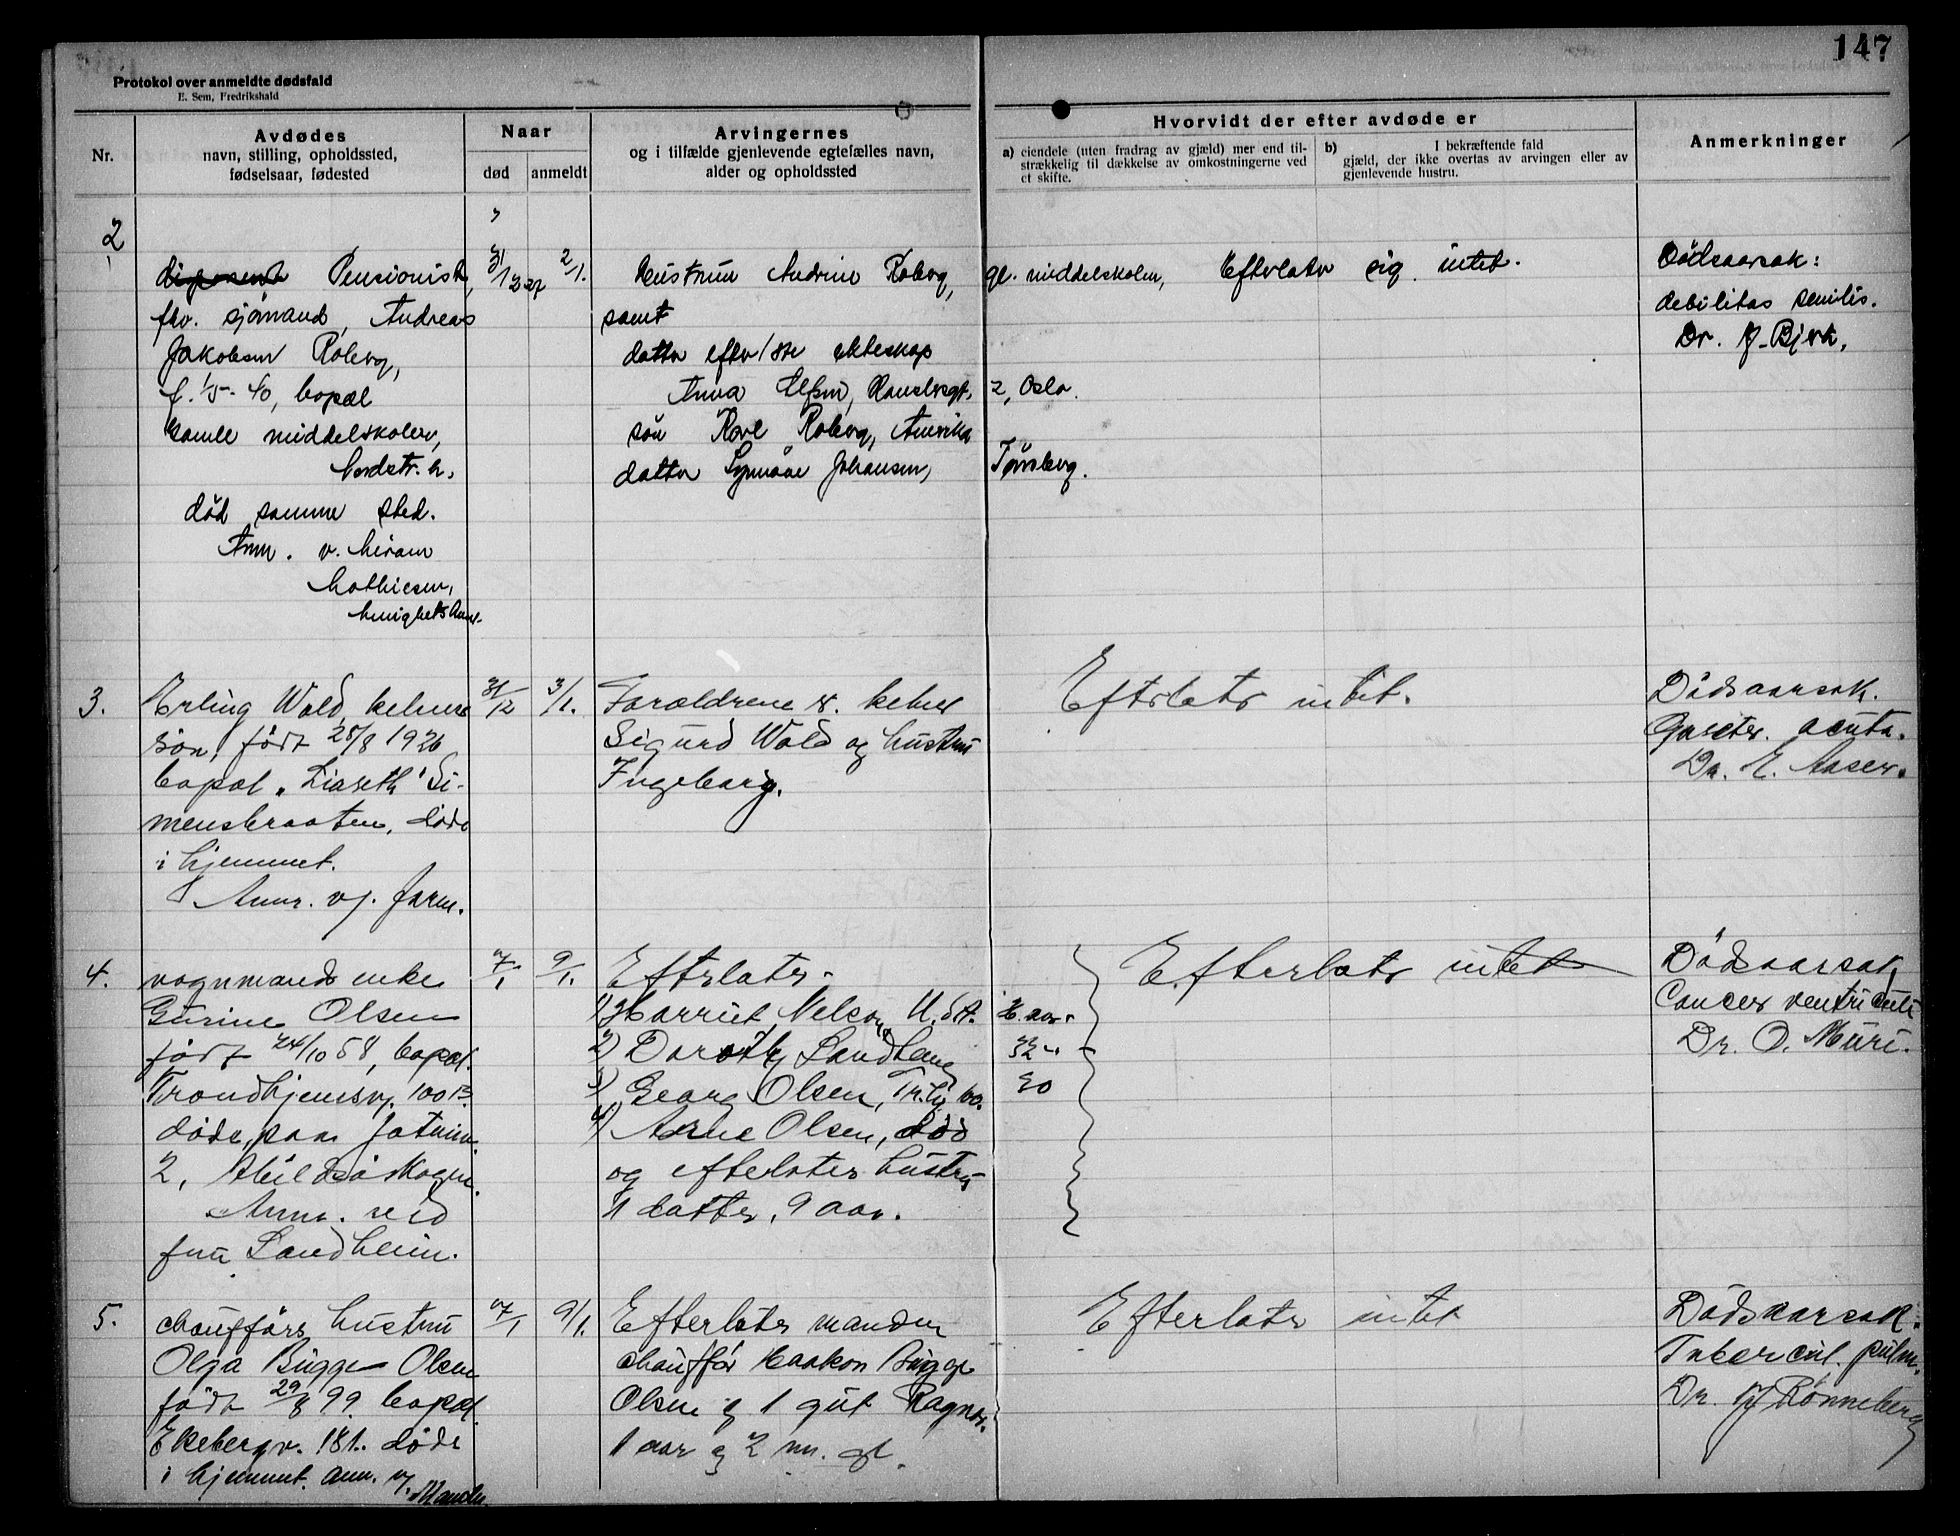 147
Protokol over anmeldte dødsfald
E. Sem, Fredrikshald
Nr.
Avdødes
navn, stilling, opholdssted,
fødselsaar, fødested
Naar
død
anmeldt
Arvingernes
og i tilfælde gjenlevende egtefælles navn,
alder og opholdssted
Hvorvidt der efter avdøde er
a) eiendele (uten fradrag av gjæld) mer end til-
strækkelig til dækkelse av omkostningerne ved
et skifte.
b) I bekræftende fald
gjæld, der ikke overtas av arvingen eller av
gjenlevende hustru.
Anmerkninger
2
Pensionist,
fhv. sjömand, Andreas
Jakobsen Roberg,
f. 1/5-40, bopæl
Gamle middelskolen,
Nordstr.h.
död samme sted.
Anm. v. Miram
Mathiesen,
31/12 27
2/1.
Hustrun Andrine Roberg, gl. middelskolen,
samt
datter efter 1ste ekteskap
Anna Elfsen, 2, Oslo.
sön Karl Roberg, Amerika
datter Synnöve Johansen, Tönsberg.
Efterlater sig intet.
Dödsaarsak:
debilitas senilis.
Dr. J. Bjerk.
3.
Erling Wold, kelner
sön, født 25/8 1926
bopæl "Liaseth" Si-
mensbraaten, döde
i hjemmet.
Anm. v/ farm.
31/12
3/1.
Forældrene er kelner
Sigurd Wold og hustru
Ingeborg.
Efterlater intet.
Dödsaarsak.
Gaster. acuta.
Dr. E. Aaser.
4.
vognmands enke
Gurine Olsen
född 24/10 58, bopæl.
Trondhjemsv. 100 B.
döde paa
2, Abildsöskogen.
Anm. ved
fru Sandheim.
7/1
9/1.
Efterlater.
1) Harriet Nelson U.S.A.
2) Dorothy Sandheim 32 " -
3) Georg Olsen, Tr.hj. 100. 30
4) Arne Olsen, död
og efterlater hustru
1 datter, 9 aar.
Efterlater intet
Dödsaarsak
Cancer ventriculi
Dr. O. Muri.
5.
chaufförs hustru
Olga Bugge Olsen
född 29/8 99. bopæl.
Ekebergv. 181. döde
i hjemmet. anm. v/
Manden.
7/1
9/1.
Efterlater manden
chauffør Haakon Bugge
Olsen og 1 gut Ragnar.
1 aar og 2 mn. gl.
Efterlater intet
Dödsaarsak:
Tubercul. pulm.
Dr. Rönneberg